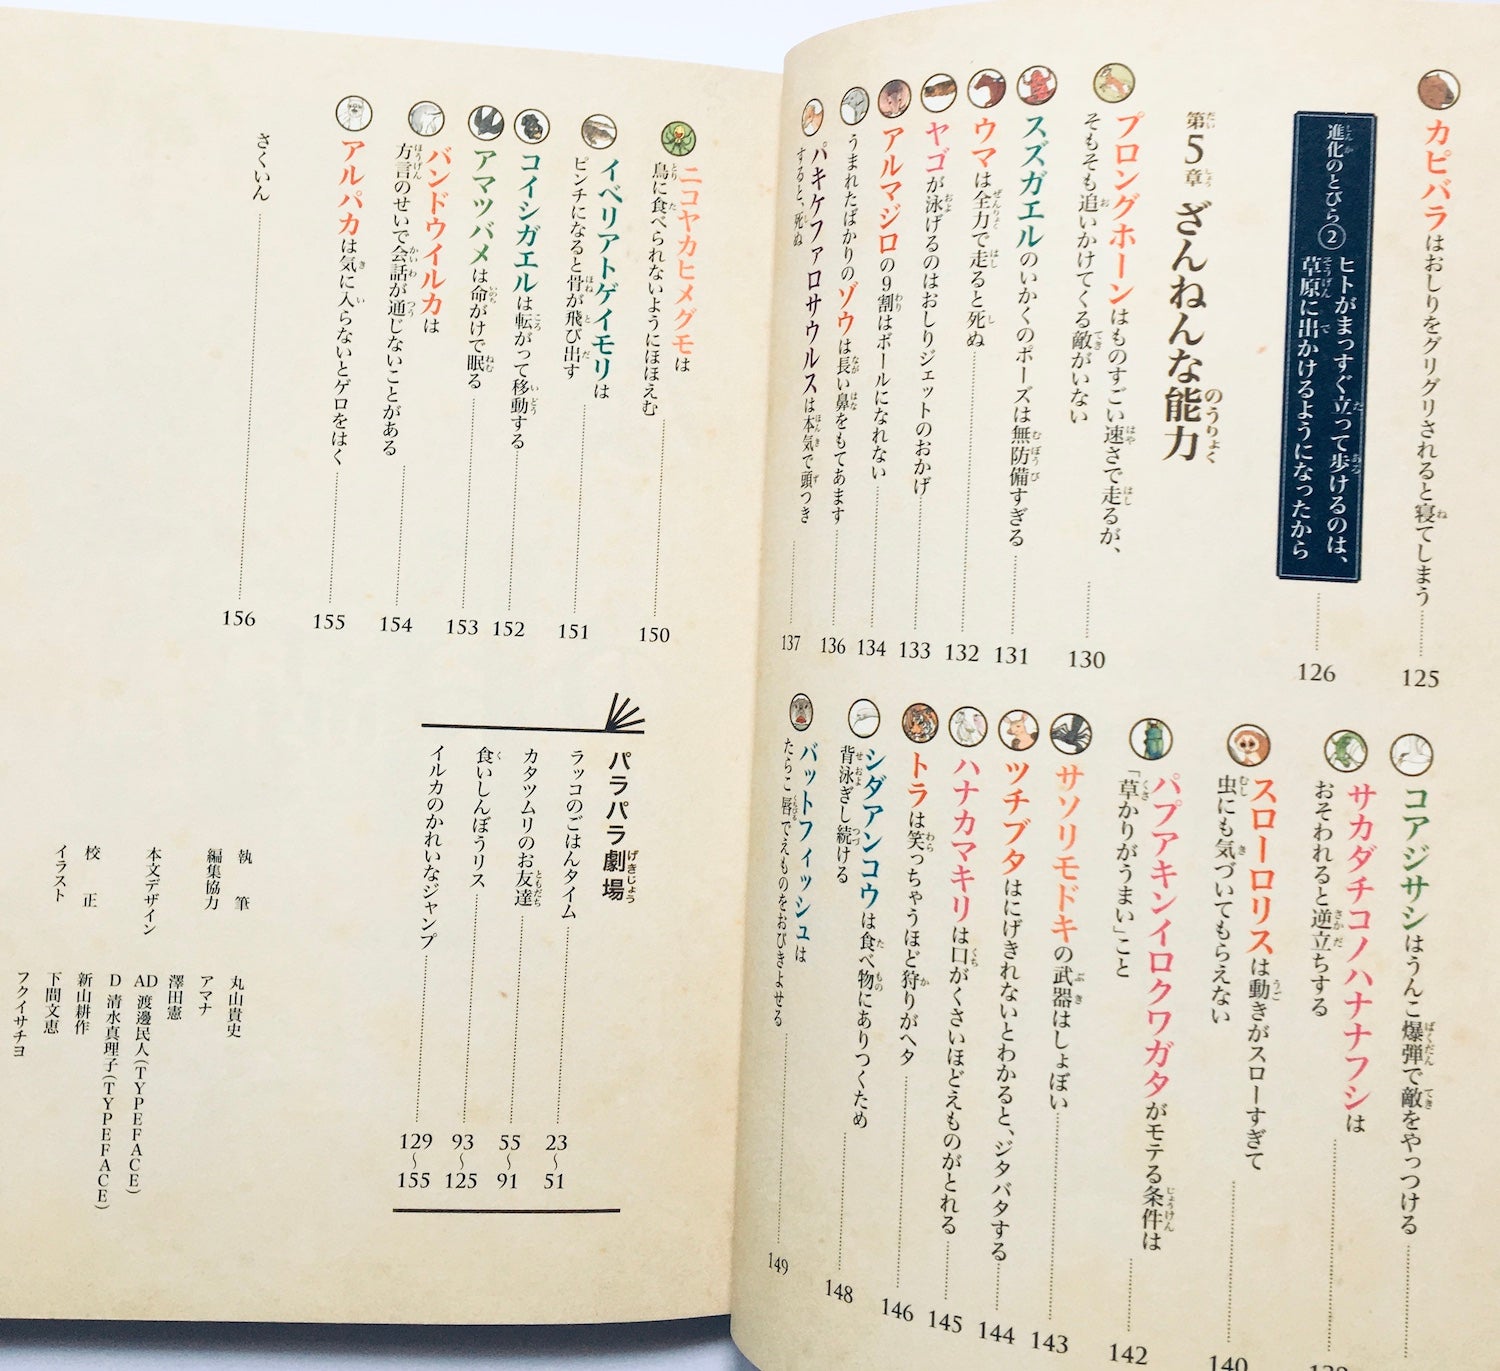 カピバラはおしりをグリグリされると寝てしまう
125
進化のとびら②
ヒトがまっすぐ立って歩けるのは、
草原に出かけるようになったから
126
第5章 ざんねんな能力
プロングホーンはものすごい速さで走るが、
そもそも追いかけてくる敵がいない
130
スズガエルのいかくのポーズは無防備すぎる
131
ウマは全力で走ると死ぬ
132
ヤゴが泳げるのはおしりジェットのおかげ
133
アルマジロの9割はボールになれない
134
うまれたばかりのゾウは長い鼻をもてあます
136
パキケファロサウルスは本気で頭つき
すると、死ぬ
137
コアジサシはうんこ爆弾で敵をやっつける
サカダチコノハナナフシは
おそわれると逆立ちする
スローロリスは動きがスローすぎて
虫にも気づいてもらえない
140
パプアキンイロクワガタがモテる条件は
「草かりがうまい」こと
142
サソリモドキの武器はしょぼい
143
ツチブタはにげきれないとわかると、ジタバタする
144
ハナカマキリは口がくさいほどえものがとれる
145
トラは笑っちゃうほど狩りがヘタ
146
シダアンコウは食べ物にありつくため
背泳ぎし続ける
148
バットフィッシュは
たらこ唇でえものをおびきよせる
149
ニコヤカヒメグモは
鳥に食べられないようにほほえむ
150
イベリアトゲイモリは
ピンチになると骨が飛び出す
151
コイシガエルは転がって移動する
152
アマツバメは命がけで眠る
153
バンドウイルカは
方言のせいで会話が通じないことがある
154
アルパカは気に入らないとゲロをはく
155
さくいん
156
パラパラ劇場
ラッコのごはんタイム
23〜51
カタツムリのお友達
55〜91
食いしんぼうリス
93〜125
イルカのかれいなジャンプ
129〜155
執筆 丸山貴史
編集協力 アマナ
澤田憲
本文デザイン AD 渡邊民人(TYPEFACE)
D 清水真理子(TYPEFACE)
校正 新山耕作
イラスト 下間文恵
フクイサチヨ